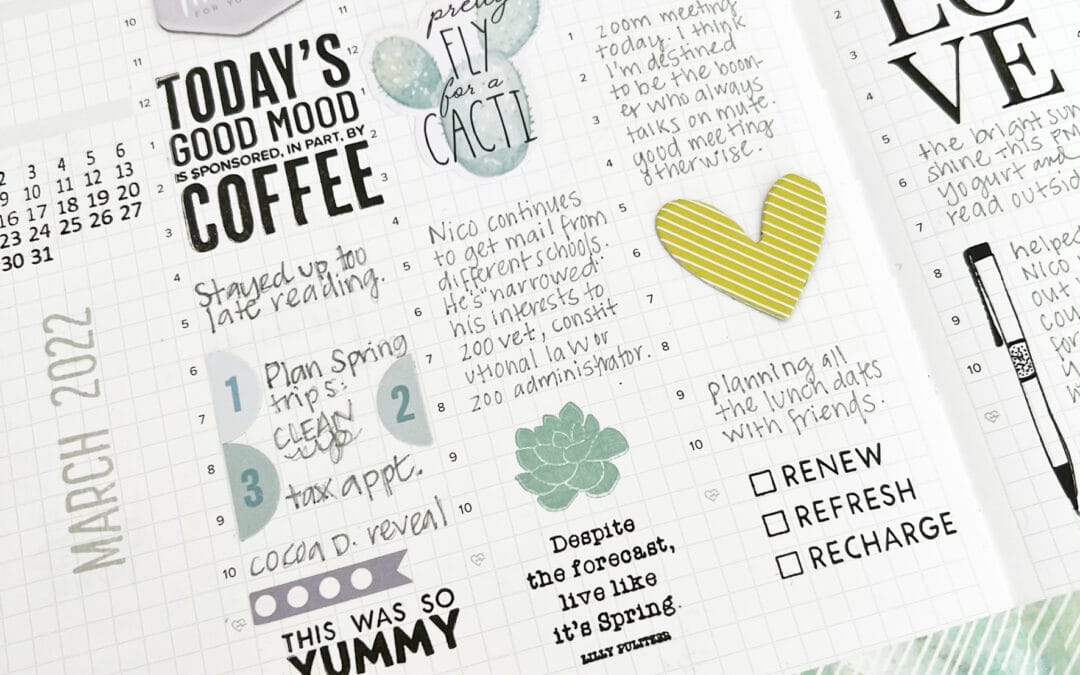 FOR YOU
TODAY'S
GOOD MOOD
IS SPONSORED, IN PART, BY
COFFEE
2 3 4 5 6
9 10 11 12 13
16 17 18 19 20
23 24 25 26 27
30 31
MARCH 2022
10
11
12
1
2
3
4
5
6
7
8
9
10
Stayed up too
late reading.
1
Plan Spring
trips:
2
CLEAN
up
3
tax appt.
cocoa D. reveal
THIS WAS SO
YUMMY
11
12
1
2
3
4
5
6
7
8
9
10
pretty
FLY
for a
CACTI
Nico continues
to get mail from
different schools.
He's narrowed
his interests to
zoo vet, constit
utional law or
zoo administrator.
Despite
the forecast,
live like
it's Spring.
LILLY PULITZER
1
2
3
4
5
6
7
8
9
10
zoom meeting
today. I think
I'm destined
to be the boom-
er who always
talks on mute.
good meeting
otherwise.
planning all
the lunch dates
with friends.
RENEW
REFRESH
RECHARGE
2
3
4
5
6
7
8
9
10
LO
VE
the bright sun
shine this PM.
Yogurt and
read outsid
helped
Nico
out
cou
for